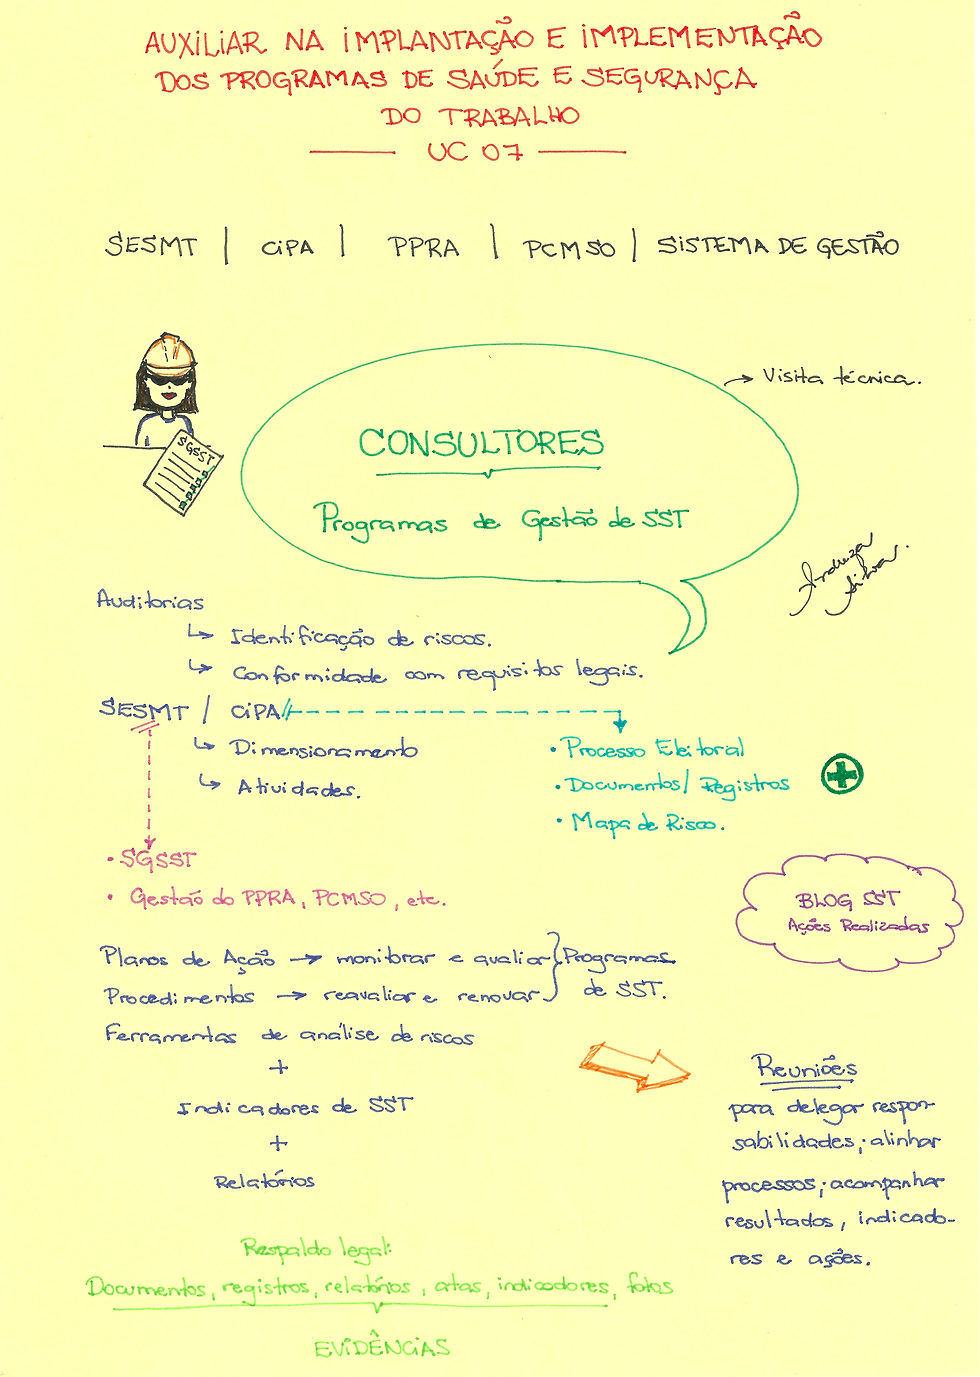 AUXILIAR NA IMPLANTAÇÃO E IMPLEMENTAÇÃO
DOS PROGRAMAS DE SAÚDE E SEGURANÇA
DO TRABALHO
UC 07
SESMT | CIPA | PPRA | PCMSO | SISTEMA DE GESTÃO
→ Visita técnica.
SGSST
CONSULTORES
Programas de Gestão de SST
Andreza
Silva
Auditorias
↳ Identificação de riscos.
↳ Conformidade com requisitos legais.
SESMT / CIPA
↳ Dimensionamento
↳ Atividades.
• Processo Eleitoral
• Documentos/ Registros
• Mapa de Risco.
• SGSST
• Gestão do PPRA, PCMSO, etc.
BLOG SST
Ações Realizadas
Planos de Ação → monitorar e avaliar } Programas
Procedimentos → reavaliar e renovar } de SST.
Ferramentas de análise de riscos
+
Indicadores de SST
+
Relatórios
Reuniões
para delegar respon-
sabilidades; alinhar
processos; acompanhar
resultados, indicado-
res e ações.
Respaldo legal:
Documentos, registros, relatórios, atas, indicadores, fotos
EVIDÊNCIAS